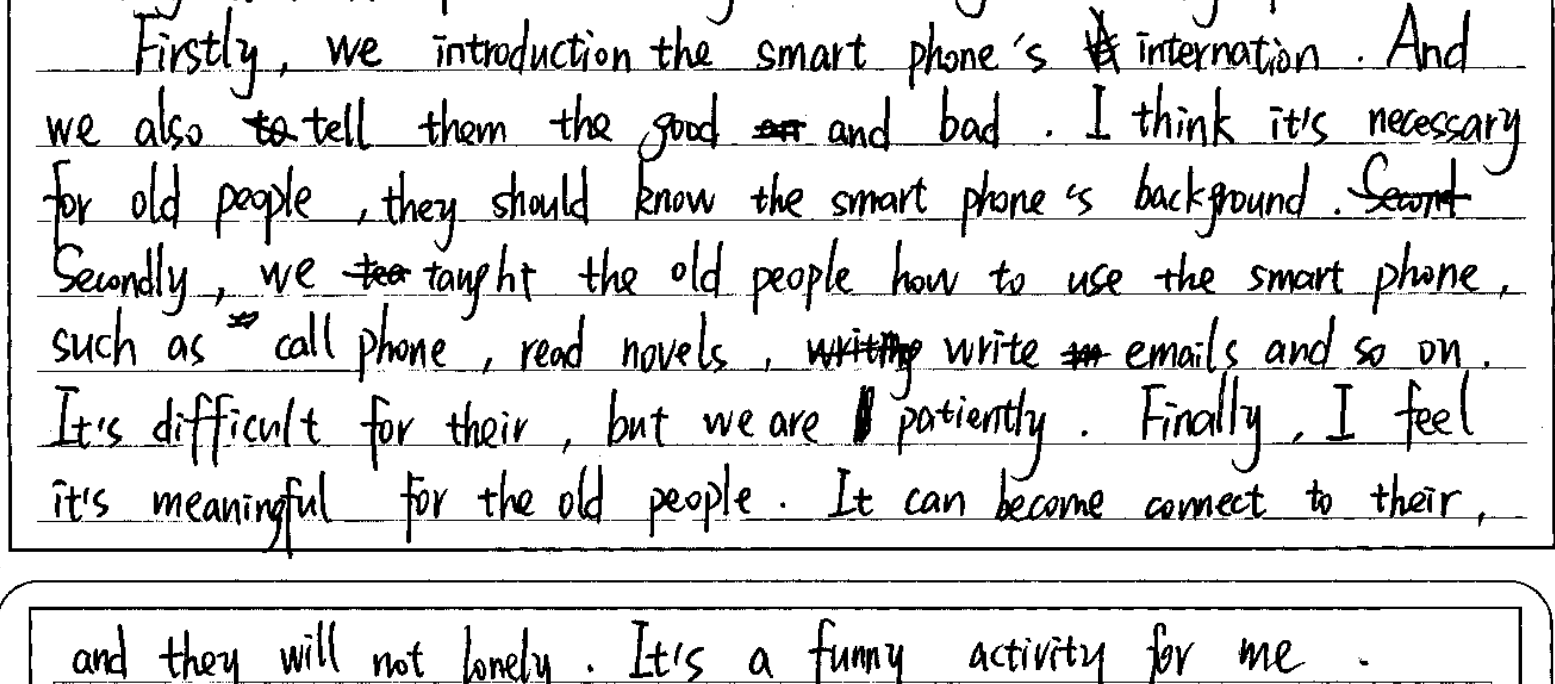 Firstly, we introduction the smart phone's internation. And
we also tell them the good and bad. I think it's necessary
for old people, they should know the smart phone's background.
Secondly, we taught the old people how to use the smart phone,
such as call phone, read novels, write emails and so on.
It's difficult for their, but we are patiently. Finally, I feel
it's meaningful for the old people. It can become connect to their,
and they will not lonely. It's a funny activity for me.